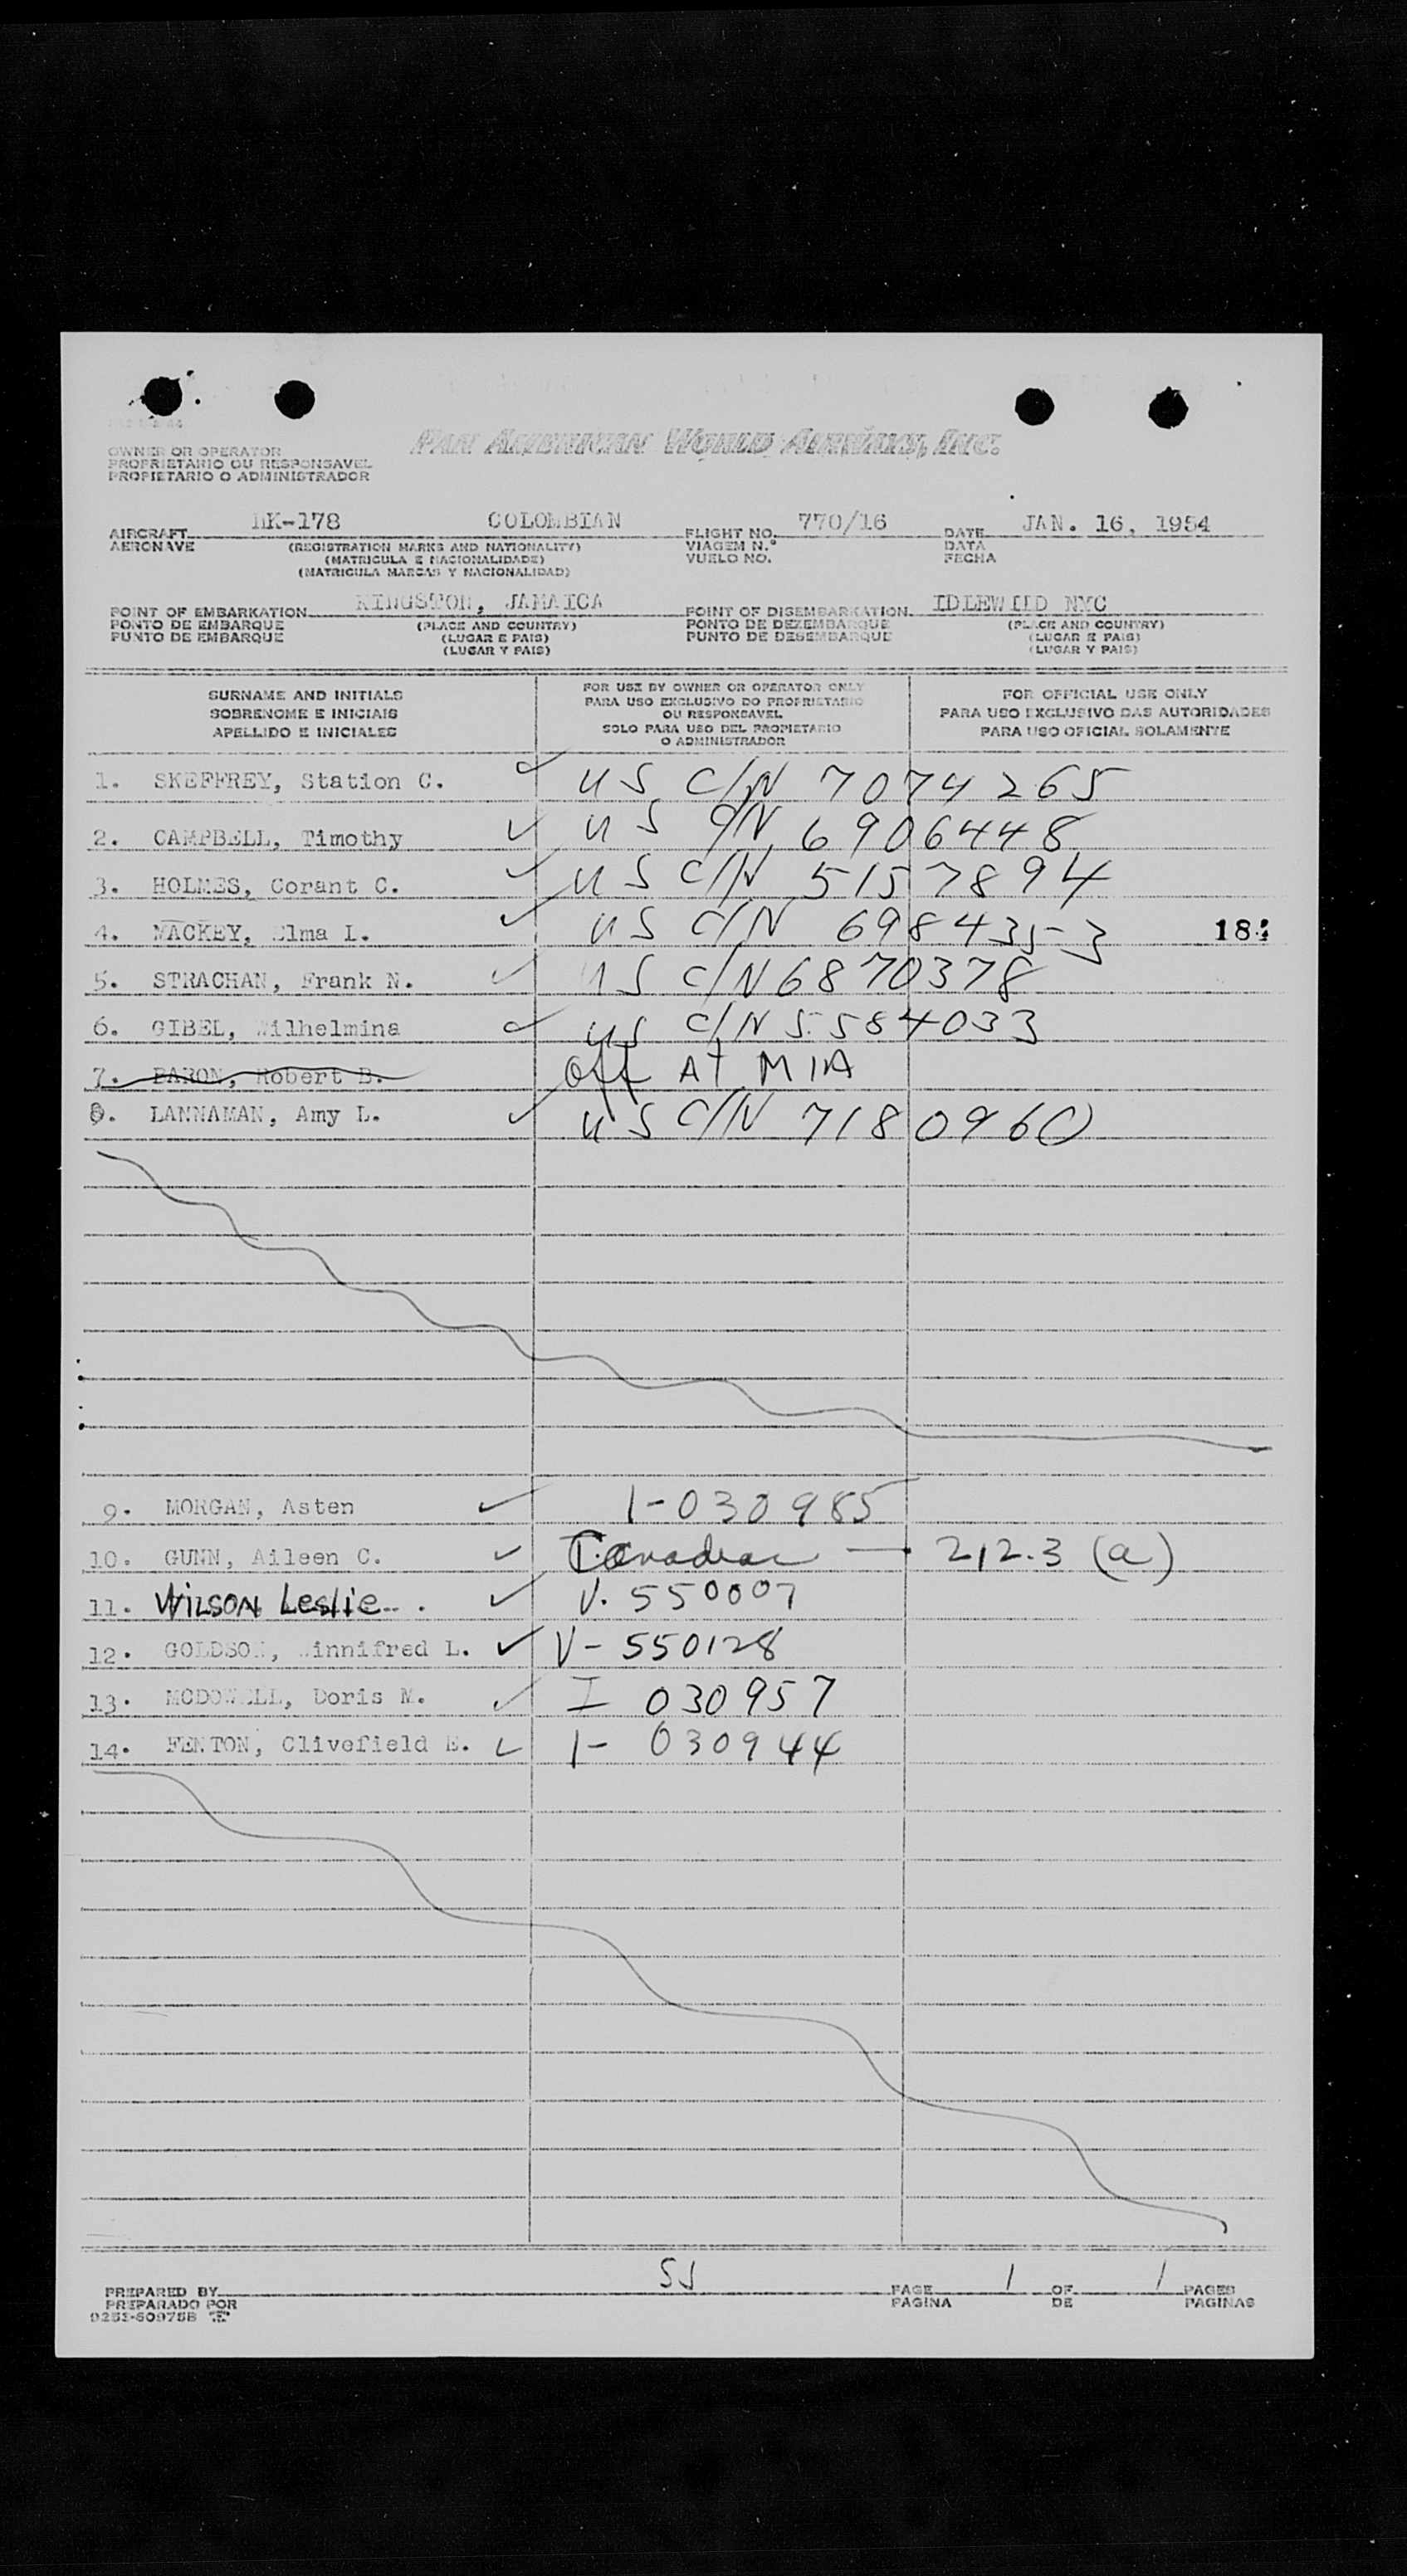 OWNER OR OPERATOR
PROPRIETARIO OU RESPONSAVEL
PROPIETARIO O ADMINISTRADOR
PAN AMERICAN WORLD AIRWAYS, INC.
AIRCRAFT HK-178 COLOMBIAN FLIGHT NO. 770/16 DATE JAN. 16, 1954
AERONAVE (REGISTRATION MARKS AND NATIONALITY) VIAGEM N.º DATA
(MATRICULA E NACIONALIDADE) VUELO NO. FECHA
(MATRICULA MARCAS Y NACIONALIDAD)
POINT OF EMBARKATION KINGSTON, JAMAICA POINT OF DISEMBARKATION IDLEWILD NYC
PONTO DE EMBARQUE (PLACE AND COUNTRY) PONTO DE DEZEMBARQUE (PLACE AND COUNTRY)
PUNTO DE EMBARQUE (LUGAR E PAIS) PUNTO DE DESEMBARQUE (LUGAR E PAIS)
(LUGAR Y PAIS) (LUGAR Y PAIS)
SURNAME AND INITIALS
SOBRENOME E INICIAIS
APELLIDO E INICIALES
FOR USE BY OWNER OR OPERATOR ONLY
PARA USO EXCLUSIVO DO PROPRIETARIO
OU RESPONSAVEL
SOLO PARA USO DEL PROPIETARIO
O ADMINISTRADOR
FOR OFFICIAL USE ONLY
PARA USO EXCLUSIVO DAS AUTORIDADES
PARA USO OFICIAL SOLAMENTE
1. SKEFFREY, Station C. ✓ US C/N 7074265
2. CAMPBELL, Timothy ✓ US C/N 6906448
3. HOLMES, Corant C. ✓ US C/N 5157894
4. MACKEY, Elma I. ✓ US C/N 6984353 18
5. STRACHAN, Frank N. ✓ US C/N 6870378
6. GIBEL, Wilhelmina ✓ US C/N 5584033
7. BARON, Robert B. Off AT MIA
8. LANNAMAN, Amy L. ✓ US C/N 7180960
9. MORGAN, Asten ✓ I-030985
10. GUNN, Aileen C. ✓ Canadian — 212.3 (a)
11. WILSON Leslie ✓ V. 550007
12. GOLDSON, Winnifred L. ✓ V-550128
13. MCDOWELL, Doris M. ✓ I 030957
14. FENTON, Clivefield E. ✓ I- 030944
PREPARED BY SJ PAGE 1 OF 1 PAGES
PREPARADO POR PAGINA DE PAGINAS